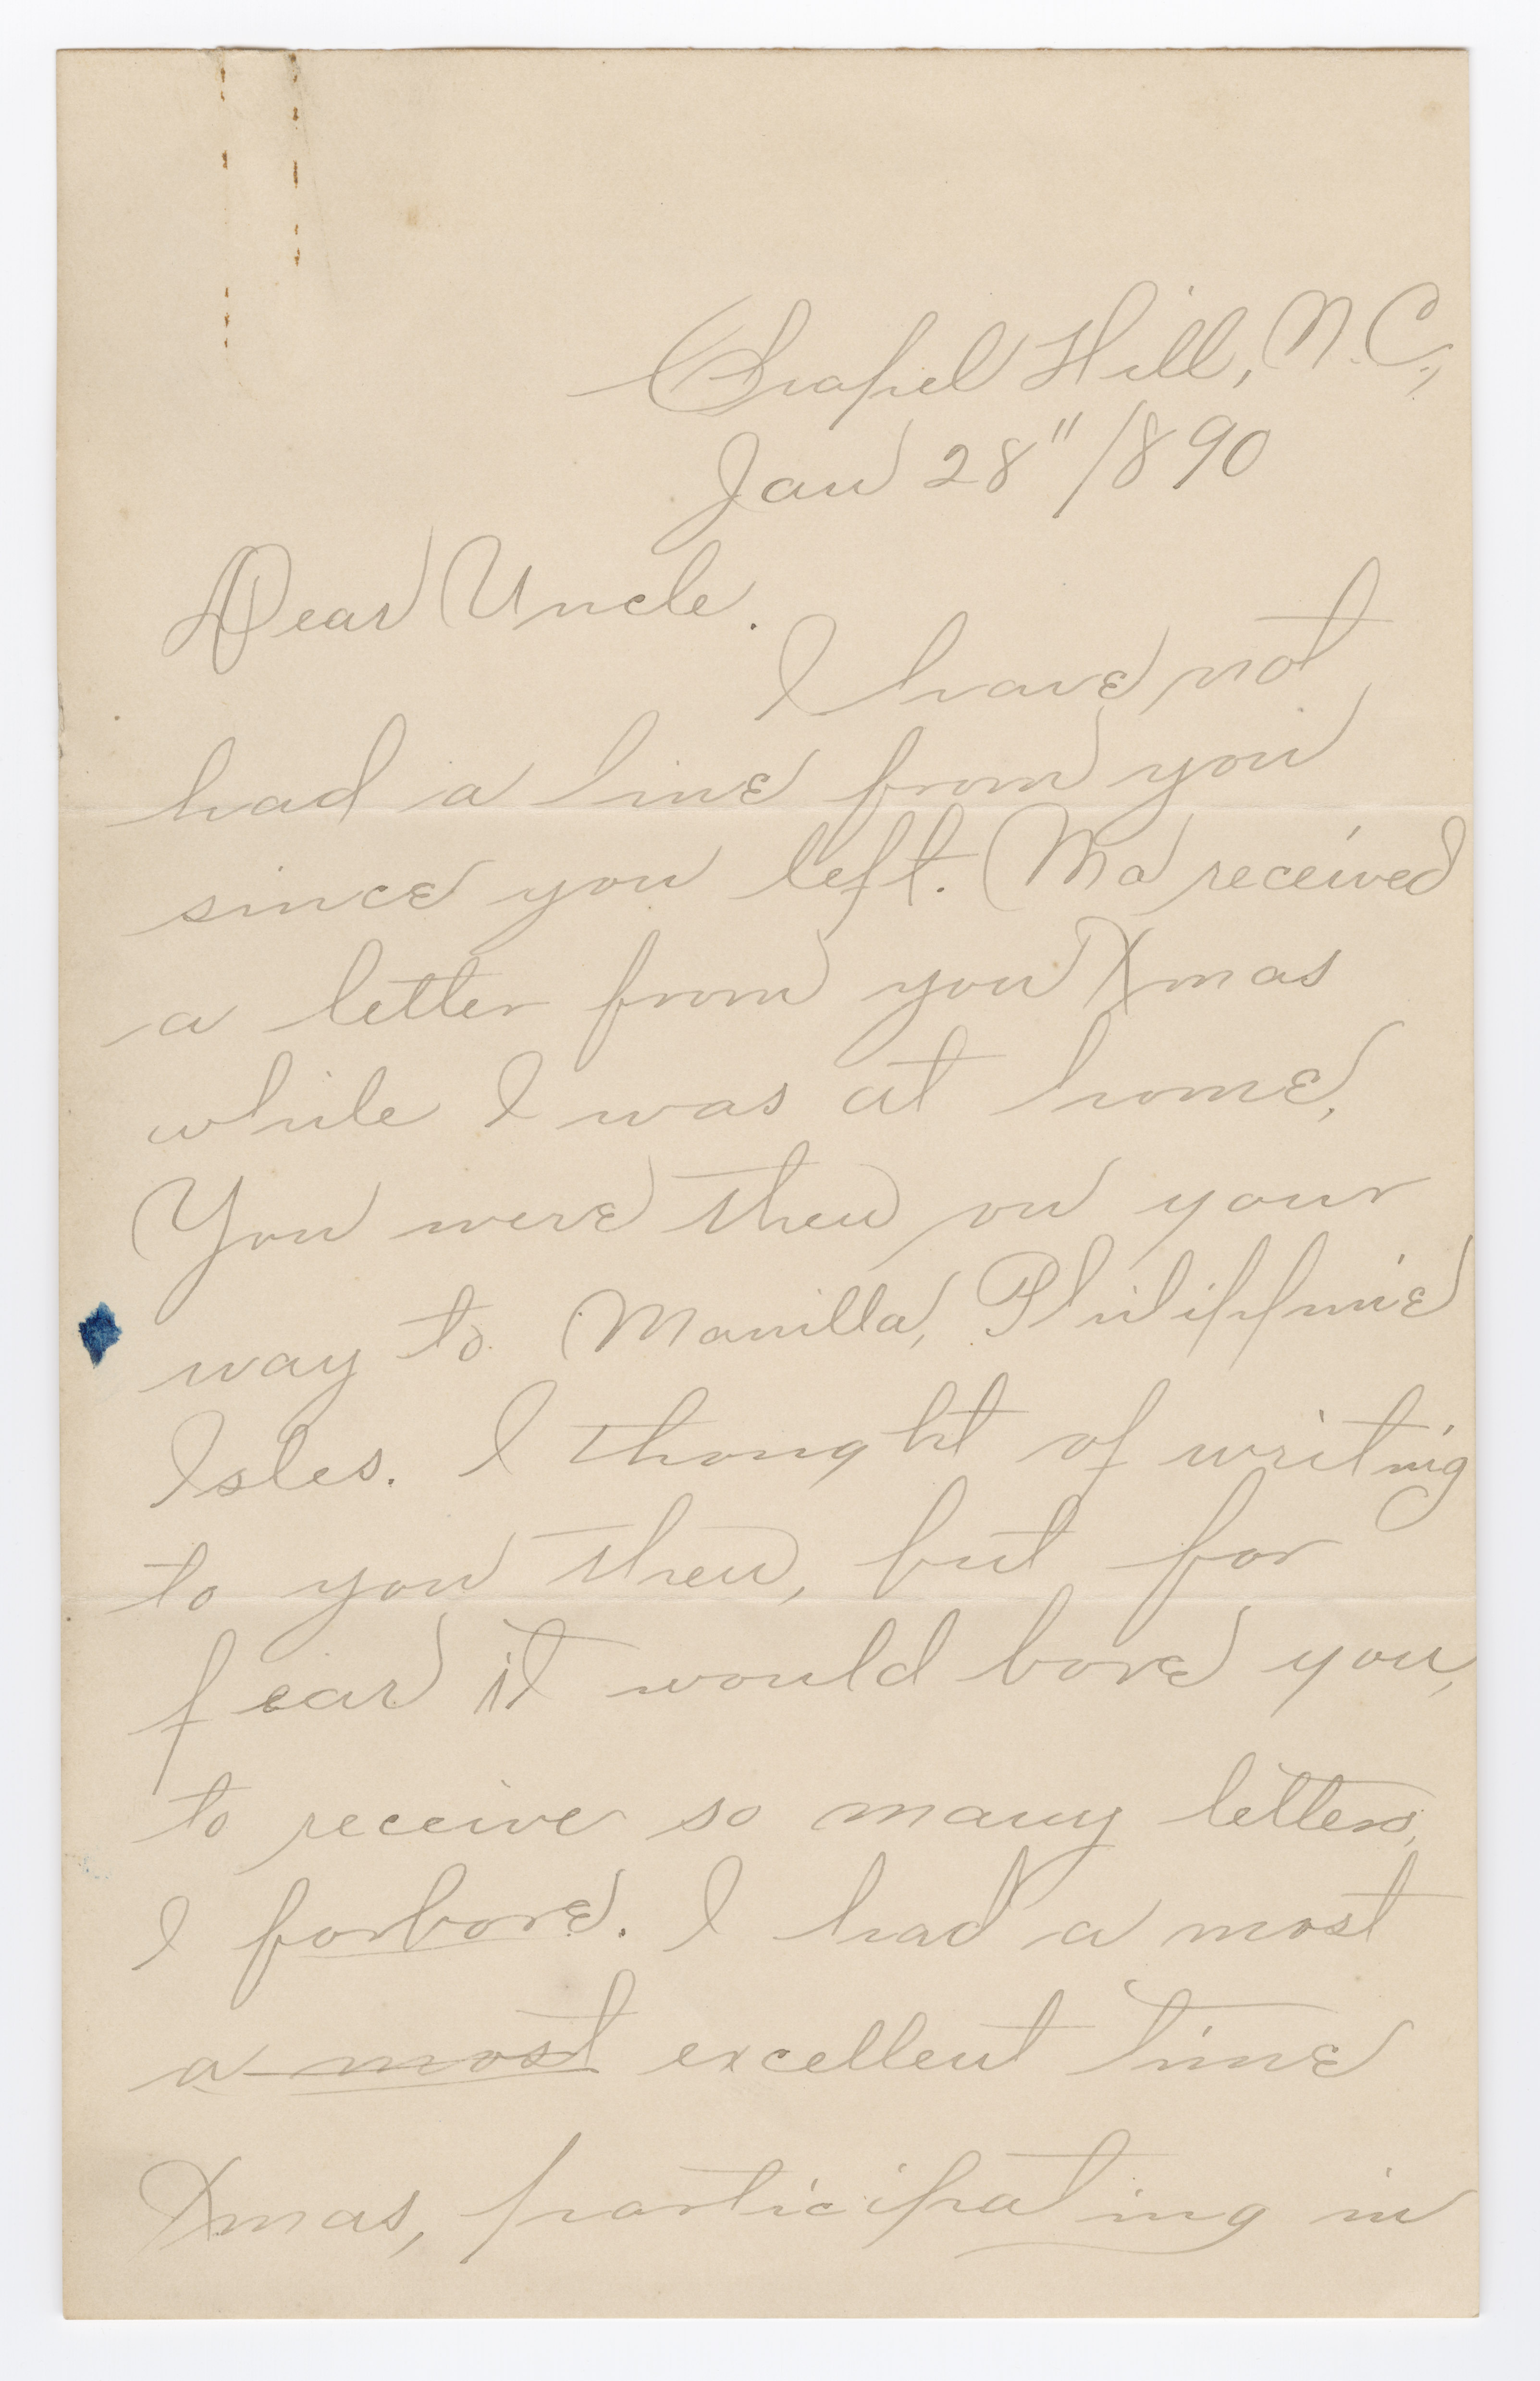 Chapel Hill, N.C.,
Jan 28" 1890
Dear Uncle.
I have not
had a line from you
since you left. Ma received
a letter from you Xmas
while I was at home.
You were then on your
way to Manilla, Philippine
Isles. I thought of writing
to you then, but for
fear it would bore you,
to receive so many letters,
I forbore. I had a most
a most excellent time
Xmas, participating in